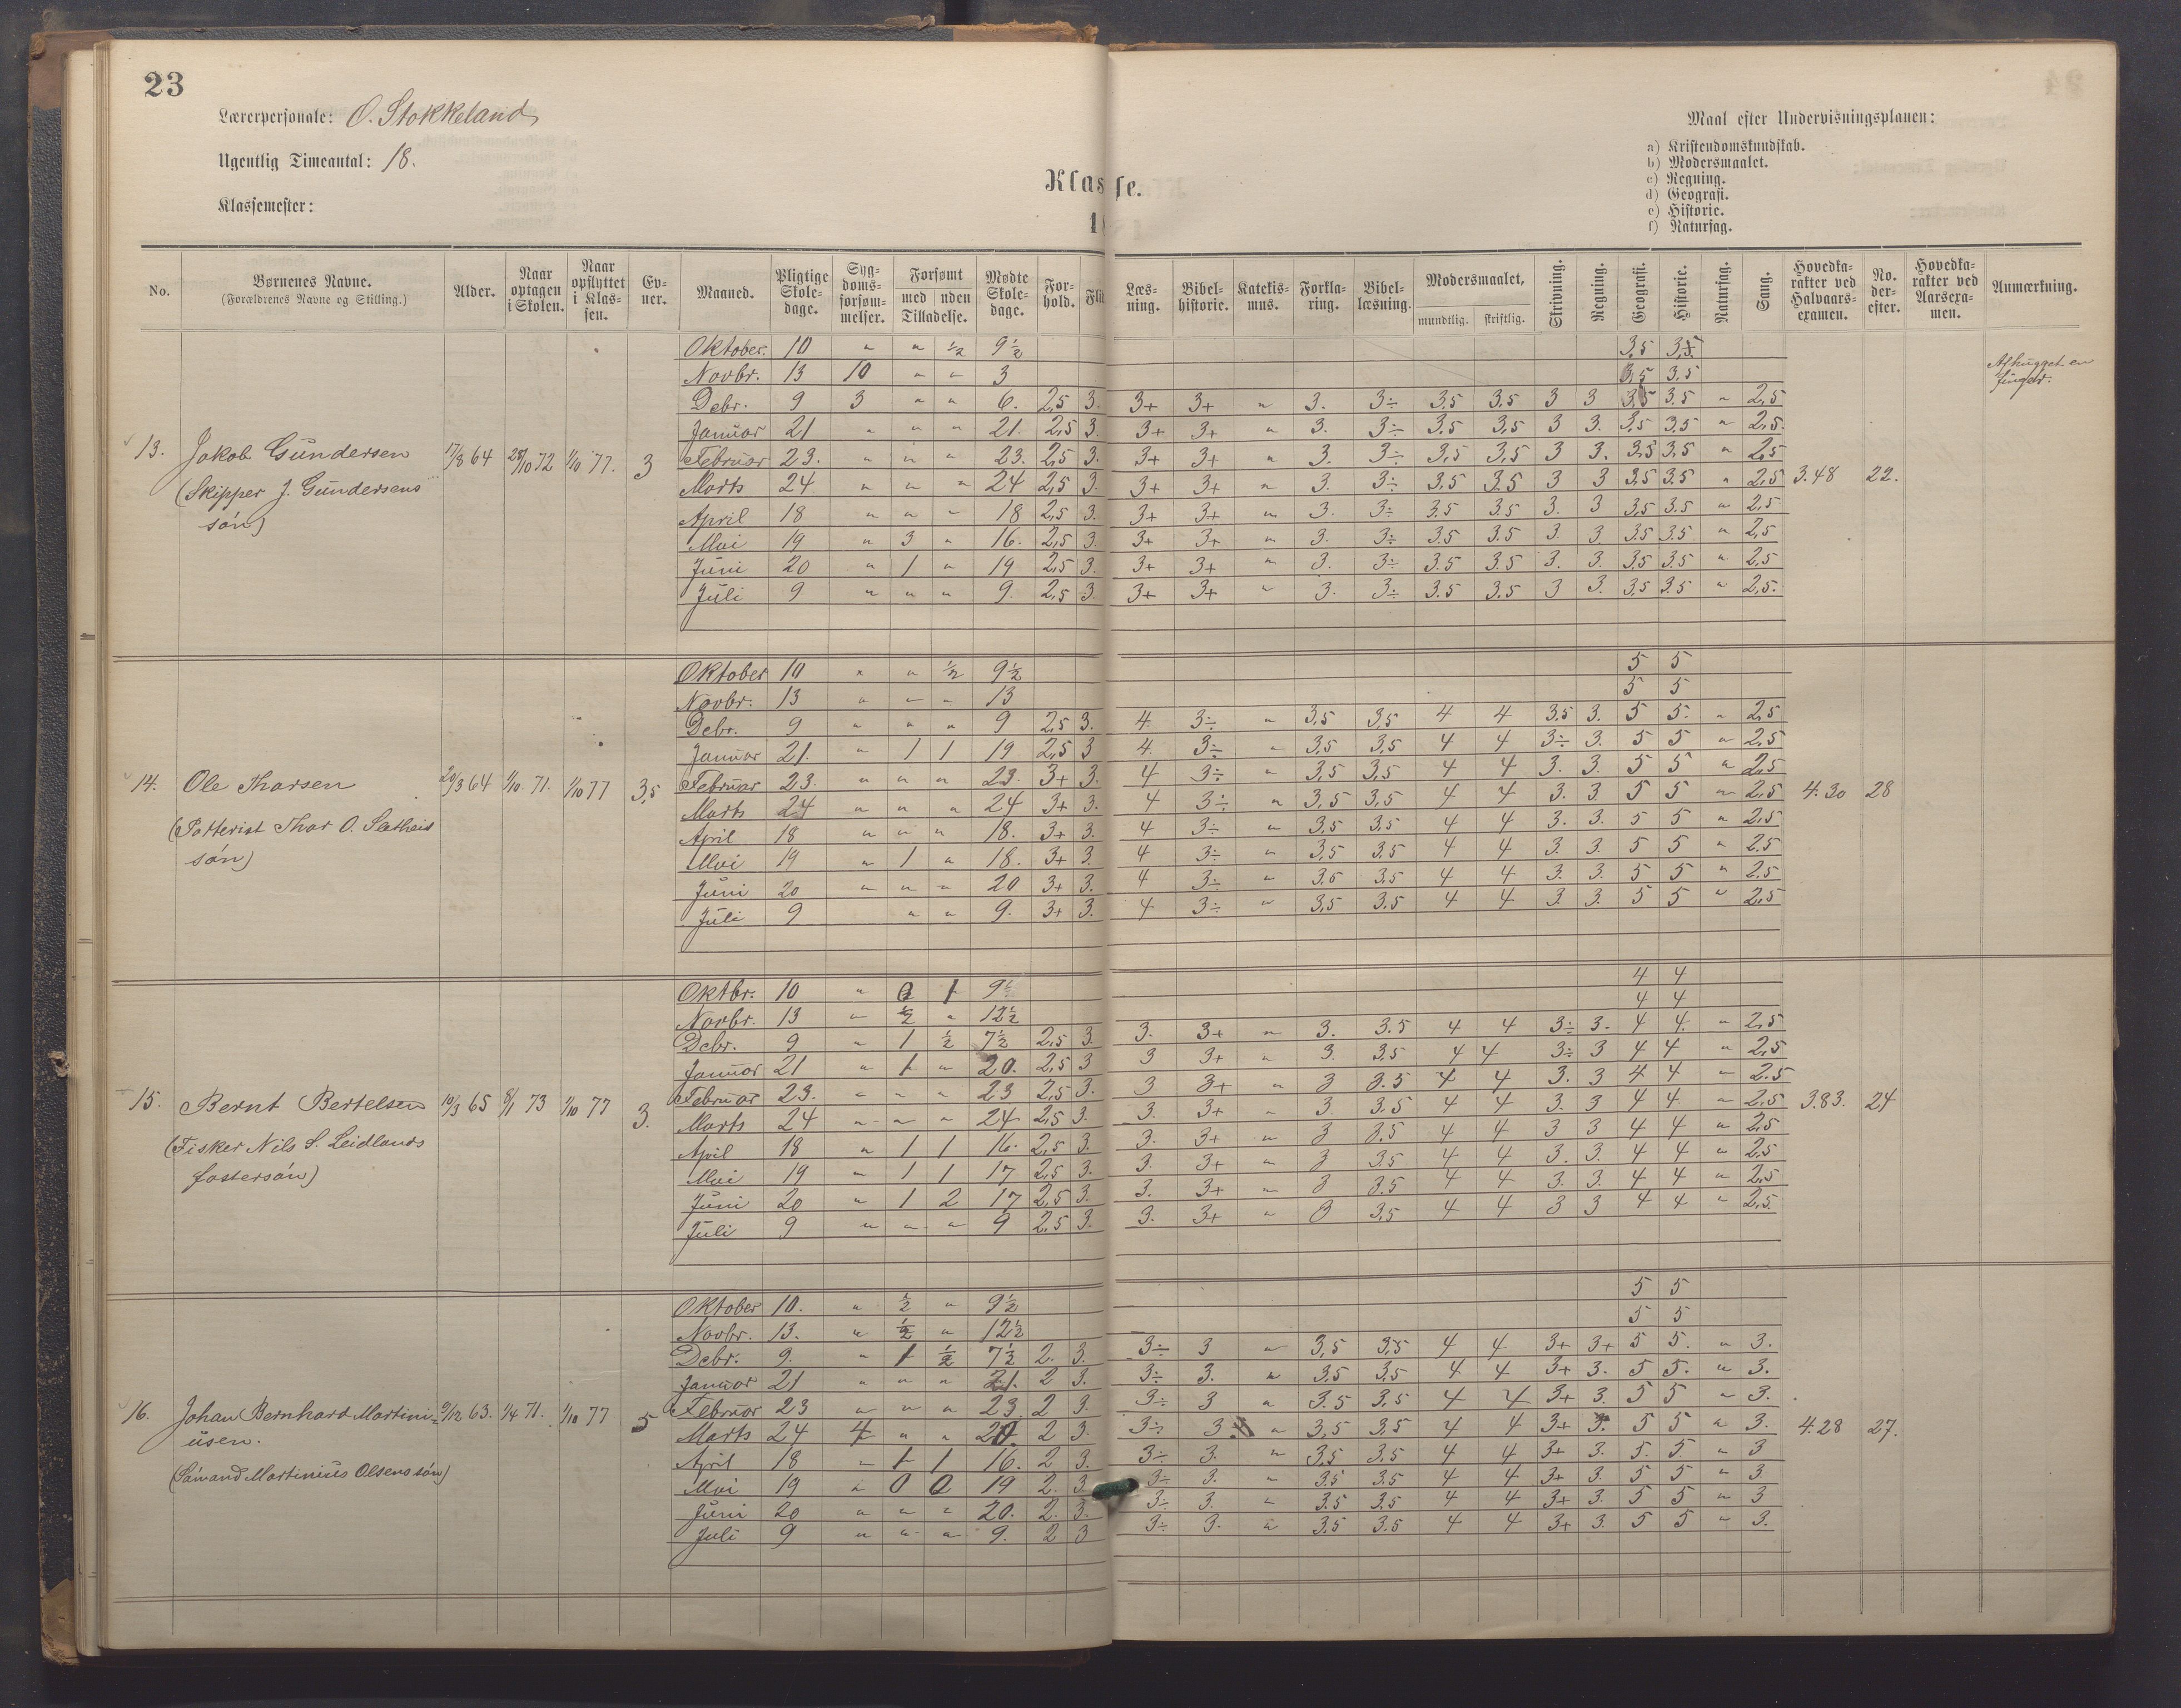 23
Lærerpersonale: O. Stokkeland
Ugentlig Timeantal: 18.
Klassemester:
Klasse.
18
Maal efter Undervisningsplanen:
a) Kristendomskundskab.
b) Modersmaalet.
c) Regning.
d) Geografi.
e) Historie.
f) Naturfag.
No. | Børnenes Navne. (Forældrenes Navne og Stilling.) | Alder. | Naar optagen i Skolen. | Naar opflyttet i Klassen. | Evner. | Maaned. | Pligtige Skoledage. | Sygdomsforsømmelser. | Forsømt med Tilladelse. | uden Tilladelse. | Mødte Skoledage. | Forhold. | Fli | Læsning. | Bibelhistorie. | Katekismus. | Forklaring. | Bibellæsning. | Modersmaalet, mundtlig. | skriftlig. | Skrivning. | Regning. | Geografi. | Historie. | Naturfag. | Sang. | Hovedkarakter ved Halvaarsexamen. | No. derefter. | Hovedkarakter ved Aarsexamen. | Anmærkning.
13. Jakob Gundersen (Skipper J. Gundersens søn) 17/8 64 | 28/10 72 | 1/10 77. | 3 | 3.48 | 22. | Afhugget en finger.
Oktober. 10 " " ½ 9½ 3,5 3,5
Novbr. 13 10 " " 3 3,5 3.5
Debr. 9 3 " " 6. 2,5 3. 3+ 3+ " 3. 3÷ 3,5 3,5 3 3 3,5 3.5 " 2,5
Januar 21 " " " 21. 2,5 3. 3+ 3+ " 3. 3÷ 3.5 3,5 3 3. 3,5 3.5 " 2,5.
Februar 23. " " " 23. 2,5 3. 3+ 3+ " 3. 3÷ 3,5 3,5 3 3. 3,5 3,5 " 2,5
Marts 24 " " " 24 2,5 3. 3+ 3+ " 3. 3÷ 3.5 3.5 3 3 3.5 3.5 " 2,5
April 18 " " " 18 2,5 3. 3+ 3+ " 3. 3÷ 3.5 3.5 3. 3 3,5 3.5 " 2,5
Mai 19 " 3 " 16. 2,5 3. 3+ 3+ " 3. 3÷ 3.5 3.5 3. 3 3.5 3.5 " 2,5
Juni 20 " 1 " 19 2,5 3. 3+ 3+ " 3. 3÷ 3.5 3.5 3. 3. 3,5 3.5 " 2,5
Juli 9 " " " 9. 2,5 3. 3+ 3+ " 3. 3÷ 3.5 3,5 3 3. 3,5 3.5 " 2,5.
14. Ole Tharsen (Parterist Thor O. søn) 20/3 64 | 1/10 71. | 1/10 77 | 3,5 | 4.30 | 28
Oktober 10 " " ½ 9½ 5 5
Novbr. 13 " " " 13 5 5
Debr. 9 " " " 9 2,5 3. 4. 3÷ " 3,5 3,5 4 4 3.5 3. 5 5. " 2,5
Januar 21. " 1 1 19 2,5 3 4. 3÷ " 3,5 3,5 4 4 3÷ 3. 5 5 " 2,5
Februar 23. " " " 23. 3+ 3. 4 3÷ " 3,5 3,5 4 4 3. 3. 5 5 " 2,5
Marts 24 " " " 24 3+ 3. 4 3÷ " 3,5 3,5 4 4 3. 3. 5 5 " 2,5
April 18 " " " 18. 3+ 3. 4 3÷ " 3,5 3,5 4 4 3. 3. 5 5 " 2,5
Mai 19 " 1 " 18. 3+ 3. 4 3÷ " 3,5 3.5 4 4 3. 3. 5 5 " 2.5
Juni 20 " " " 20 3+ 3. 4 3÷ " 3.5 3.5 4 4 3. 3. 5 5 " 2.5
Juli 9 " " 9. 3+ 3. 4 3÷ " 3,5 3.5 4 4 3. 3. 5 5 " 2,5
15. Bernt Bertelsen (Fisker Nils S. Leidlands fostersøn) 19/3 65 | 8/1 73 | 1/10 77 | 3. | 3.83. | 24
Oktbr. 10 " 1 9½ 4 4
Novbr. 13 " ½ " 12½ 4 4
Debr. 9 " 1 ½ 7½ 2,5 3. 3. 3+ " 3. 3.5 4 4 3÷ 3. 4 4. " 2,5
Januar 21 " 1 " 20. 2,5 3 3 3+ " 3. 3.5 4 4 3÷ 3 4 4 " 2,5
Februar 23. " " " 23 2,5 3. 3 3+ " 3 3.5 4 4 3. 3 4 4 " 2.5
Marts 24 " " " 24 2,5 3. 3. 3+ " 3. 3.5 4 4 3. 3 4 4 " 2,5
April 18 " 1 1 16. 2,5 3. 3. 3+ " 3 3.5 4 4 3 3 4 4 " 2,5
Mai 19 " 1 1 17 2,5 3. 3. 3+ " 3 3.5 4 4 3. 3. 4 4 " 2,5
Juni 20 " 1 2 17 2,5 3. 3. 3+ " 3 3.5 4 4 3. 3. 4 4 " 2,5
Juli 9 " " " 9 2,5 3. 3. 3+ " 3 3,5 4 4 3 3 4 4 " 2,5.
16. Johan Bernhard Martiniusen. (Sømand Martinius Olsens søn) 9/12 63. | 1/4 71. | 1/10 77 | 5 | 4.28 | 27.
Oktober 10. " ½ " 9½ 5 5
Novbr. 13. " ½ " 12½ 5 5
Debr. 9. " 1 ½ 7½ 2. 3. 3÷ 3 " 3,5 3,5 4 4 3+ 3+ 5 5. " 3.
Januar 21 " " " 21. 2 3. 3÷ 3. " 3,5 3,5 4 4 3+ 3. 5 5. " 3.
Februar 23 " " " 23. 2 3. 3÷ 3 " 3.5 3,5 4 4 3+ 3. 5 5 " 3.
Marts 24 4 " " 20. 2 3. 3÷ 3 " 3,5 3,5 4 4 3+ 3. 5 5 " 3.
April 18 " 1 1 16. 2 3. 3÷ 3. " 3,5 3,5 4 4 3+ 3. 5. 5 " 3
Mai 19 " 0 0 19 2. 3 3÷ 3. " 3.5 3.5 4 4 3+ 3. 5 5 " 3.
Juni 20 " " " 20. 2. 3. 3÷ 3. " 3.5 3,5 4 4 3+ 3. 5 5 " 3
Juli 9 " " " 9. 2 3 3÷ 3. " 3,5 3.5 4 4 3+ 3. 5 5 " 3.